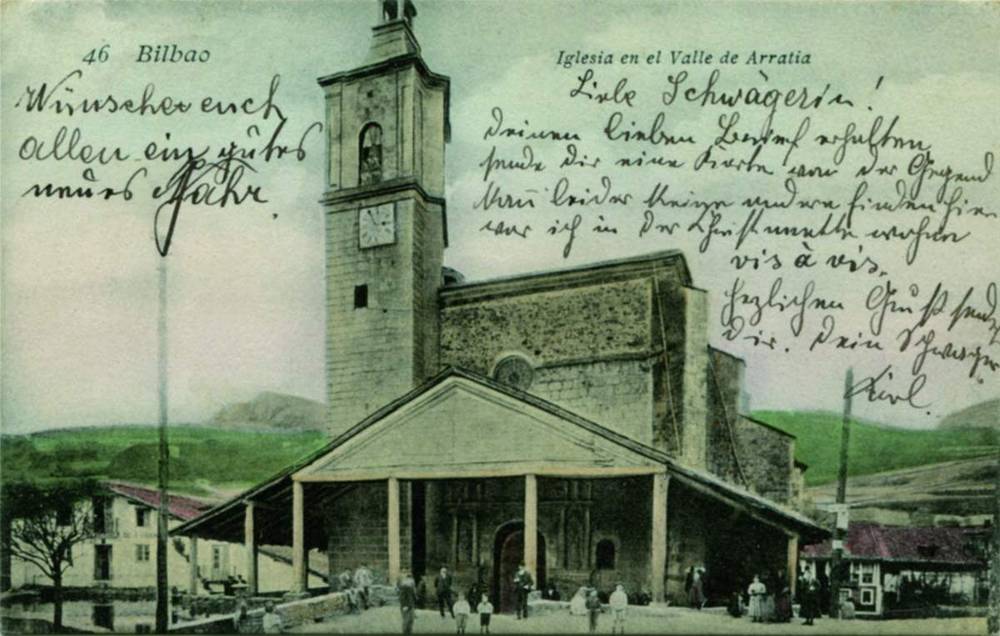 46 Bilbao
Iglesia en el Valle de Arratia
Wünsche euch
allen ein gutes
neues Jahr.
Liebe Schwägerin!
Deinen lieben Brief erhalten
sende dir eine Karte von der Gegend
kann leider keine andere finden hier
war ich in der Christmette wohne
vis à vis.
Herzlichen Gruß sendet
Dir. Dein Schwager
Karl.